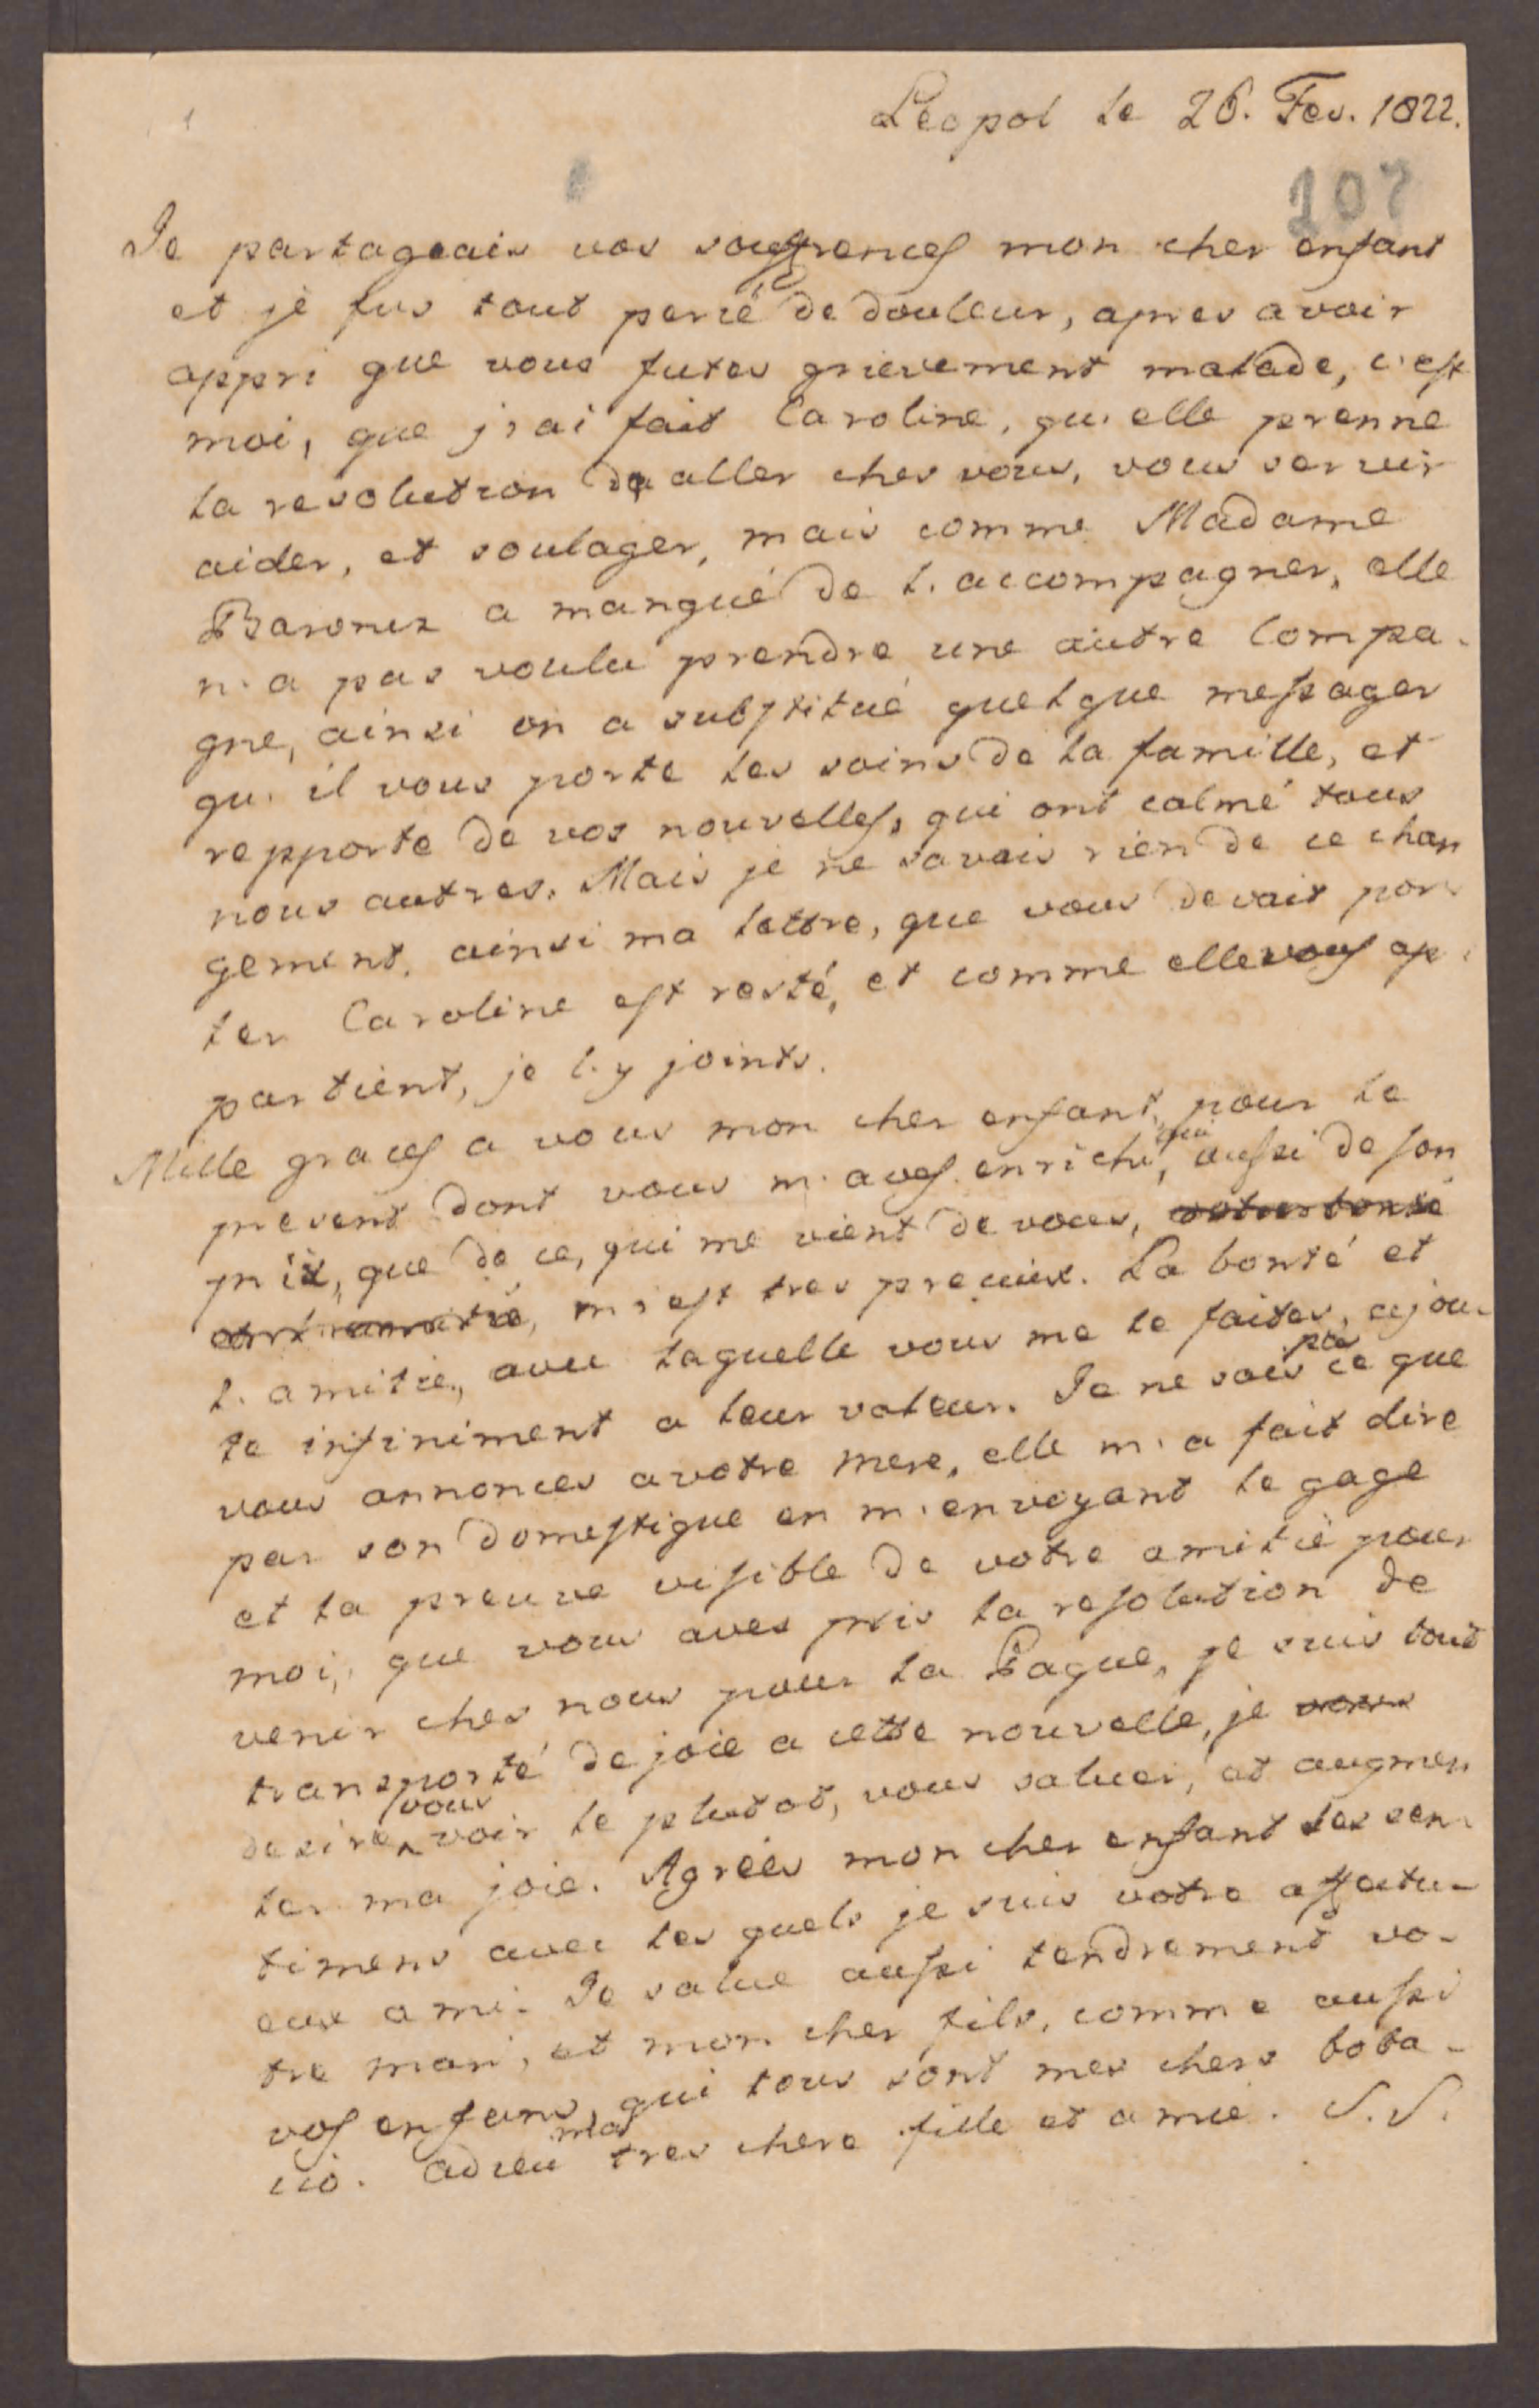 Léopol le 26. Fev. 1822.
207
Je partageais vos souffrences mon cher enfant
et je fus tout percé de douleur, apres avoir
appri que vous futes grievement malade, c'est
moi, que j'ai fait Caroline, qu'elle prenne
la resolution de aller ches vous, vous servir
aider, et soulager, mais comme Madame
a manqué de l'accompagner, elle
n'a pas voulu prendre une autre Compa-
gne, ainsi on a substitué quelque messager
qu'il vous porte les soins de la famille, et
repporte de vos nouvelles, qui ont calmé tous
nous autres. Mais je ne savais rien de ce chan
gement, ainsi ma lettre, que vous devait por-
ter Caroline est resté, et comme elle vous ap-
partient, je l'y joints.
Mille graces a vous mon cher enfant, pour le
present dont vous m'aves enrichi, qui aussi de son
prix, que de ce, qui me vient de vous, votre bonté
m'est tres precieux. La bonté et
l'amitie, avec laquelle vous me le faites, ajou-
te infiniment a leur valeur. Je ne sais pas ce que
vous annonces a votre mere, elle m'a fait dire
par son domestique en m'envoyant le gage
et la preuve visible de votre amitié pour
moi, que vous aves pris la resolution de
venir ches nous pour la Paque, je suis tout
transporté de joie a cette nouvelle, je vous
desire vous voir le plutot, vous saluer, et augmen
ter ma joie. Agrées mon cher enfant les sen-
timens avec les quels je suis votre affectu-
eux ami. Je salue aussi tendrement vo-
tre mari, et mon cher fils, comme aussi
vos enfans, qui tous sont mes chers boba-
cio. adieu ma tres chere fille et amie. S.S.